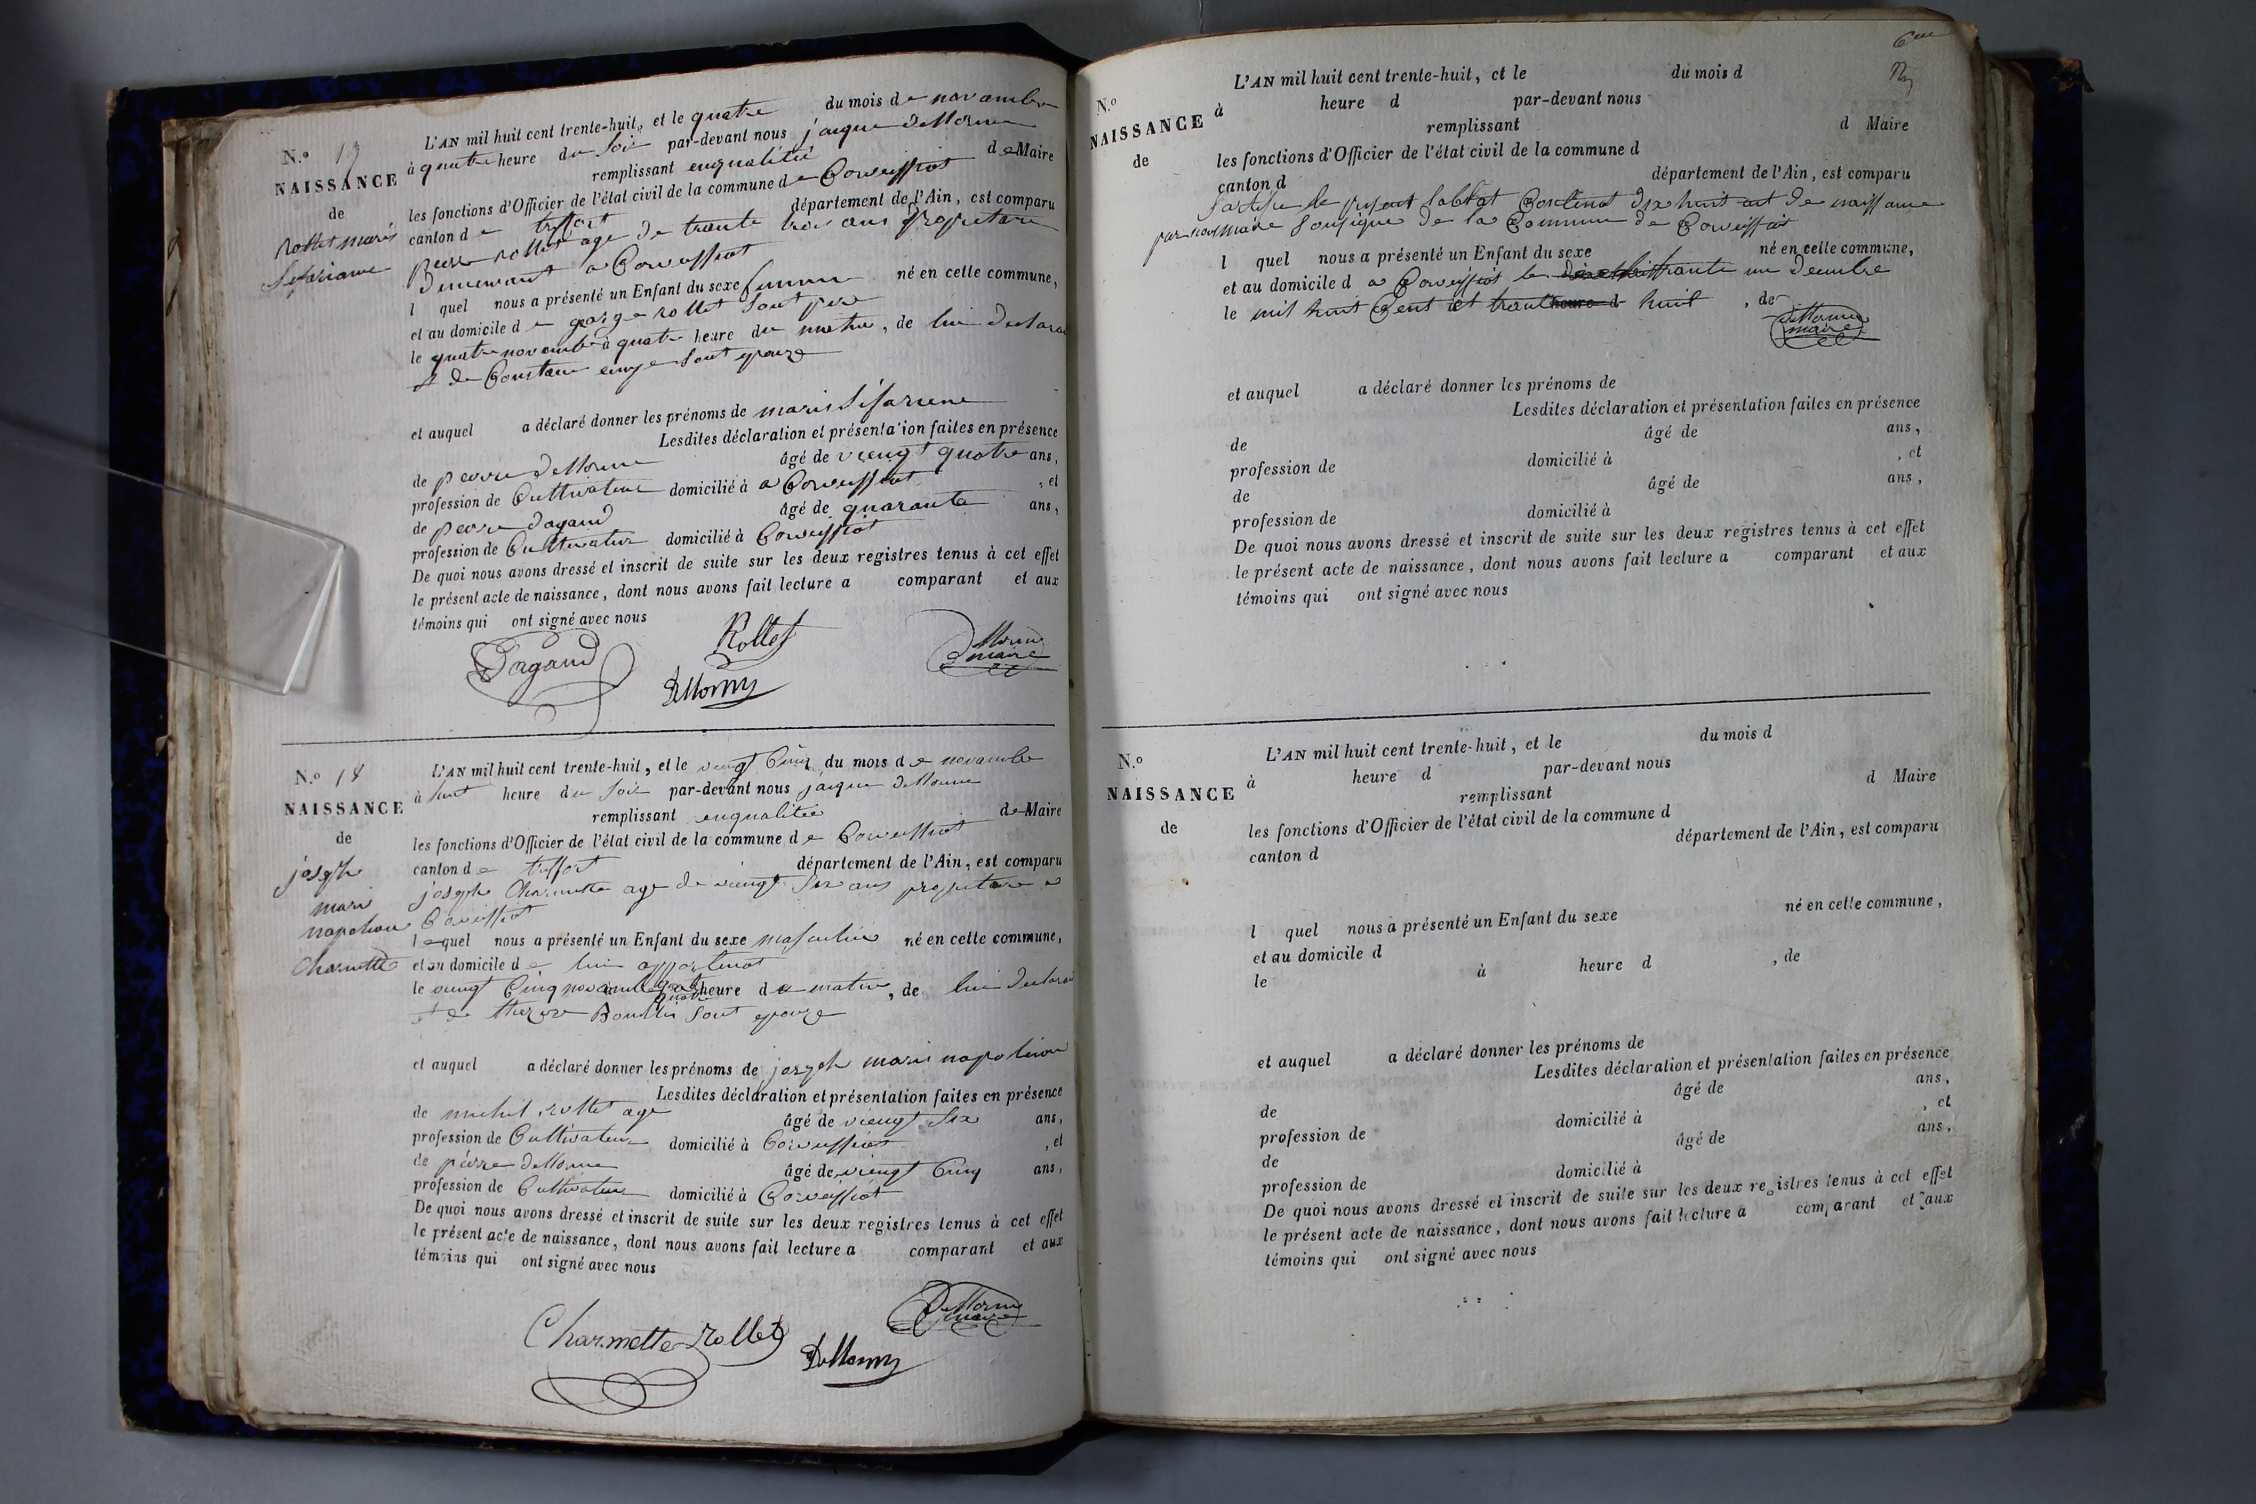 N.º 17
NAISSANCE
de
Rollet marie
L'AN mil huit cent trente-huit, et le quatre du mois de novambre
à quatre heure du soir par-devant nous jacque deMornu
remplissant enqualitié de Maire
les fonctions d'Officier de l'état civil de la commune de Corveissiat
canton de treffort département de l'Ain, est comparu
rollet age de trante trois ans propietaire
a Corveissiat
l quel nous a présenté un Enfant du sexe né en cette commune,
et au domicile de rollet sont pere
le quatre novambre à quatre heure du matin, de lui declarant
et de Constance sont epouze
et auquel a déclaré donner les prénoms de marie
Lesdites déclaration et présentation faites en présence
de pierre âgé de viengt quatre ans,
profession de Cultivateur domicilié à a Corveissiat, et
de pierre dagand âgé de quarante ans,
profession de Cultivateur domicilié à Corveissiat
De quoi nous avons dressé et inscrit de suite sur les deux registres tenus à cet effet
le présent acte de naissance, dont nous avons fait lecture a comparant et aux
témoins qui ont signé avec nous
Dagand Rollet
maire
N.º 18
NAISSANCE
de
joseph
marie
napoleon
Charmette
L'AN mil huit cent trente-huit, et le viengt Cinq du mois de novambre
à huit heure du soir par-devant nous jacque
remplissant enqualitée de Maire
les fonctions d'Officier de l'état civil de la commune de Corveissiat
canton de treffort département de l'Ain, est comparu
joseph Charmette age de viengt six ans propietaire a
Corveissiat
lequel nous a présenté un Enfant du sexe masculin né en cette commune,
et au domicile de lui appartenat
le viengt Cinq novambre quatre heure du matin, de lui declarant
et de Sont epouze
et auquel a déclaré donner les prénoms de joseph marie napoleon
Lesdites déclaration et présentation faites en présence
de michel rollet age âgé de viengt six ans,
profession de Cultivateur domicilié à Corveissiat, et
de pierre âgé de viengt Cinq ans,
profession de Cultivateur domicilié à Corveissiat
De quoi nous avons dressé et inscrit de suite sur les deux registres tenus à cet effet
le présent acte de naissance, dont nous avons fait lecture a comparant et aux
témoins qui ont signé avec nous
Charmette Rollet
maire
6me
N.º
NAISSANCE
de
L'AN mil huit cent trente-huit, et le du mois d
à heure d par-devant nous
remplissant d Maire
les fonctions d'Officier de l'état civil de la commune d
canton d département de l'Ain, est comparu
le present Contenat dix huit act de naissance
par nous maire sousigné de la Commune de Corveissiat
l quel nous a présenté un Enfant du sexe né en cette commune,
et au domicile d a Corveissiat le trante un decembre
le mil huit Cent et trante heure d huit, de
maire
et auquel a déclaré donner les prénoms de
Lesdites déclaration et présentation faites en présence
de âgé de ans,
profession de domicilié à , et
de âgé de ans,
profession de domicilié à
De quoi nous avons dressé et inscrit de suite sur les deux registres tenus à cet effet
le présent acte de naissance, dont nous avons fait lecture a comparant et aux
témoins qui ont signé avec nous
N.º
NAISSANCE
de
L'AN mil huit cent trente-huit, et le du mois d
à heure d par-devant nous
remplissant d Maire
les fonctions d'Officier de l'état civil de la commune d
canton d département de l'Ain, est comparu
l quel nous a présenté un Enfant du sexe né en cette commune,
et au domicile d
le à heure d , de
et auquel a déclaré donner les prénoms de
Lesdites déclaration et présentation faites en présence
de âgé de ans,
profession de domicilié à , et
de âgé de ans,
profession de domicilié à
De quoi nous avons dressé et inscrit de suite sur les deux registres tenus à cet effet
le présent acte de naissance, dont nous avons fait lecture a comparant et aux
témoins qui ont signé avec nous